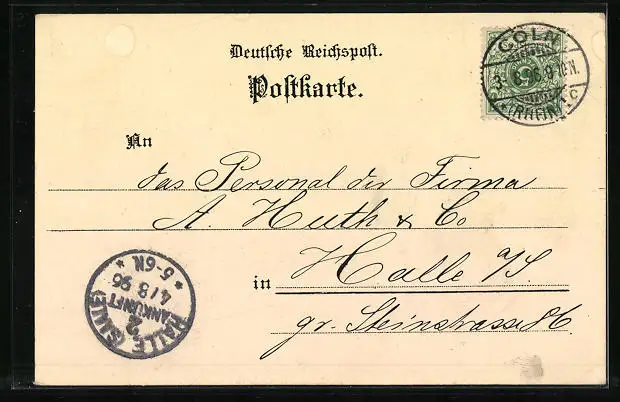 Deutsche Reichspost.
Postkarte.
CÖLN
3.8.96.9-10N.
(RHEIN) 1 c
An
das Personal der Firma
A. Huth & Co
in Halle a/S.
gr. Steinstrasse 86.
HALLE (SAALE)
2
ANKUNFT
4/8 96
* 5-6N. *